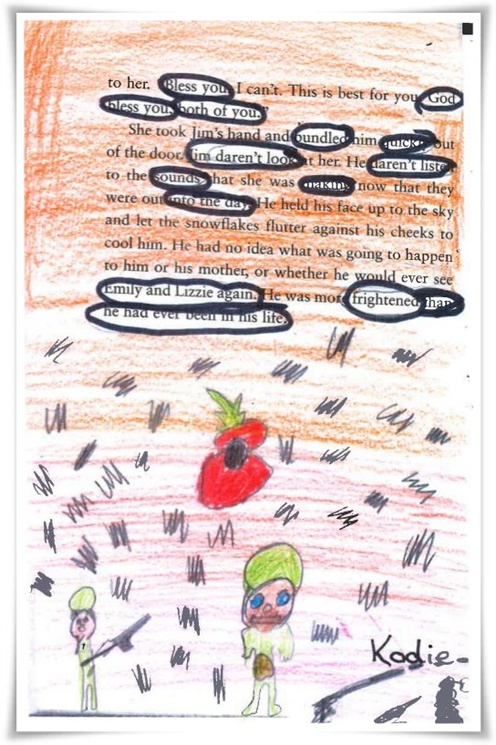 to her. Bless you, I can't. This is best for you. God
bless you, both of you.'
She took Jim's hand and bundled him quickly out
of the door. Jim daren't look at her. He daren't listen
to the sounds that she was making now that they
were out into the day. He held his face up to the sky
and let the snowflakes flutter against his cheeks to
cool him. He had no idea what was going to happen
to him or his mother, or whether he would ever see
Emily and Lizzie again. He was more frightened than
he had ever been in his life.
Kodie.